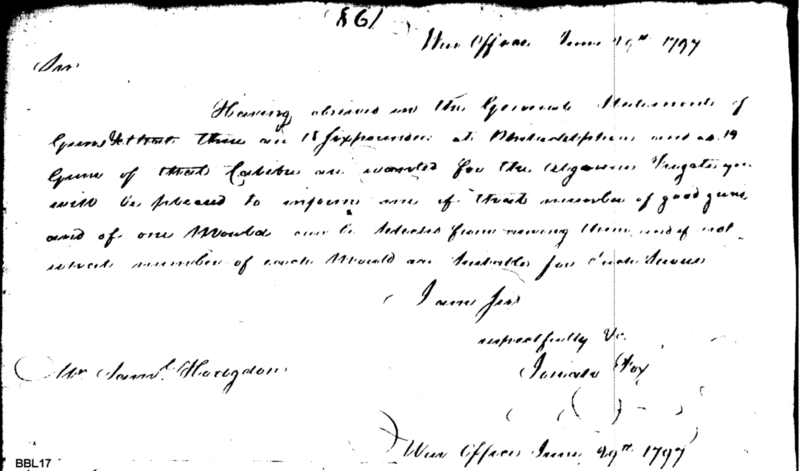 861
War Office June 29th 1797
Sir
Having observed in the General Statement of
Guns &c that there are 18 Sixpounders at Philadelphia and as 19
Guns of that Calibre are wanted for the Algerine Frigate you
will be pleased to inform me if that number of good guns
and of one Mould can be selected from among them, and if not
what number of each Mould are Suitable for Such Service
I am Sir
respectfully &c.
Mr. Saml. Hodgdon
War Office June 29th 1797
BBL17